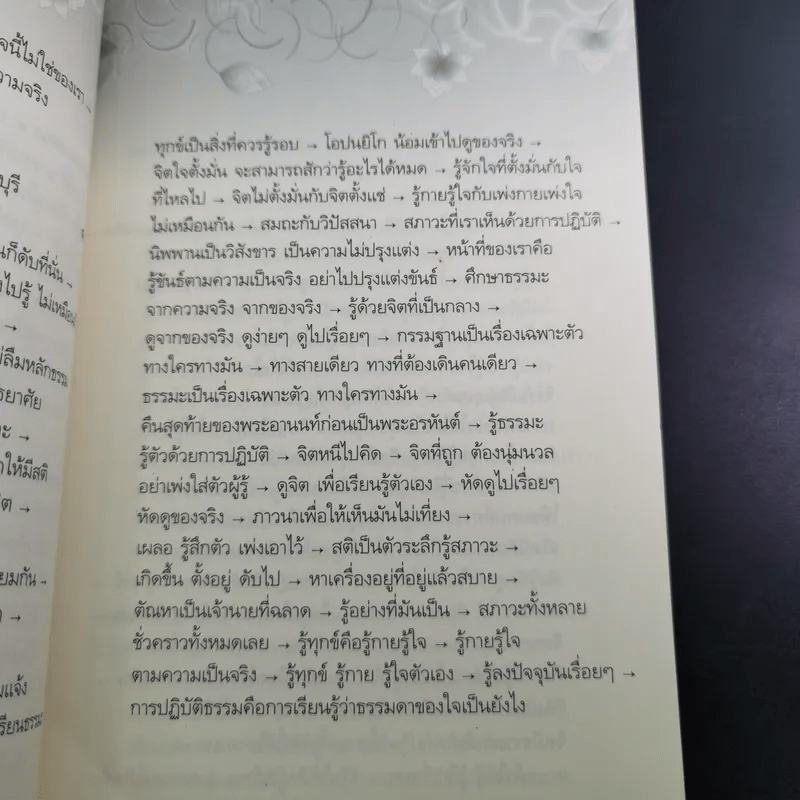 จนี้ไม่ใช่ของเรา →
วามจริง
บุรี
นก็ดับที่นั่น →
งไปรู้ ไม่เหมือน
→
ลืมหลักธรรม
รยาศัย
ะ →
าให้มีสติ
ิต →
ยมกัน →
า →
มแจ้ง
รียนธรรม
ทุกข์เป็นสิ่งที่ควรรู้รอบ → โอปนยิโก น้อมเข้าไปดูของจริง →
จิตใจตั้งมั่น จะสามารถสักว่ารู้อะไรได้หมด → รู้จักใจที่ตั้งมั่นกับใจ
ที่ไหลไป → จิตไม่ตั้งมั่นกับจิตตั้งแช่ → รู้กายรู้ใจกับเพ่งกายเพ่งใจ
ไม่เหมือนกัน → สมถะกับวิปัสสนา → สภาวะที่เราเห็นด้วยการปฏิบัติ →
นิพพานเป็นวิสังขาร เป็นความไม่ปรุงแต่ง → หน้าที่ของเราคือ
รู้ขันธ์ตามความเป็นจริง อย่าไปปรุงแต่งขันธ์ → ศึกษาธรรมะ
จากความจริง จากของจริง → รู้ด้วยจิตที่เป็นกลาง →
ดูจากของจริง ดูง่ายๆ ดูไปเรื่อยๆ → กรรมฐานเป็นเรื่องเฉพาะตัว
ทางใครทางมัน → ทางสายเดียว ทางที่ต้องเดินคนเดียว →
ธรรมะเป็นเรื่องเฉพาะตัว ทางใครทางมัน →
คืนสุดท้ายของพระอานนท์ก่อนเป็นพระอรหันต์ → รู้ธรรมะ
รู้ตัวด้วยการปฏิบัติ → จิตหนีไปคิด → จิตที่ถูก ต้องนุ่มนวล
อย่าเพ่งใส่ตัวผู้รู้ → ดูจิต เพื่อเรียนรู้ตัวเอง → หัดดูไปเรื่อยๆ
หัดดูของจริง → ภาวนาเพื่อให้เห็นมันไม่เที่ยง →
เผลอ รู้สึกตัว เพ่งเอาไว้ → สติเป็นตัวระลึกรู้สภาวะ →
เกิดขึ้น ตั้งอยู่ ดับไป → หาเครื่องอยู่ที่อยู่แล้วสบาย →
ตัณหาเป็นเจ้านายที่ฉลาด → รู้อย่างที่มันเป็น → สภาวะทั้งหลาย
ชั่วคราวทั้งหมดเลย → รู้ทุกข์คือรู้กายรู้ใจ → รู้กายรู้ใจ
ตามความเป็นจริง → รู้ทุกข์ รู้กาย รู้ใจตัวเอง → รู้ลงปัจจุบันเรื่อยๆ →
การปฏิบัติธรรมคือการเรียนรู้ว่าธรรมดาของใจเป็นยังไง